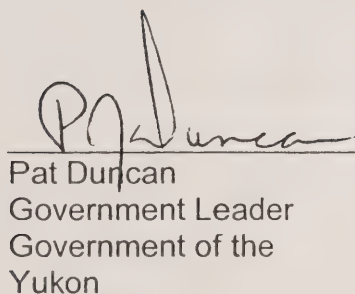 P J Duncan
Pat Duncan
Government Leader
Government of the
Yukon